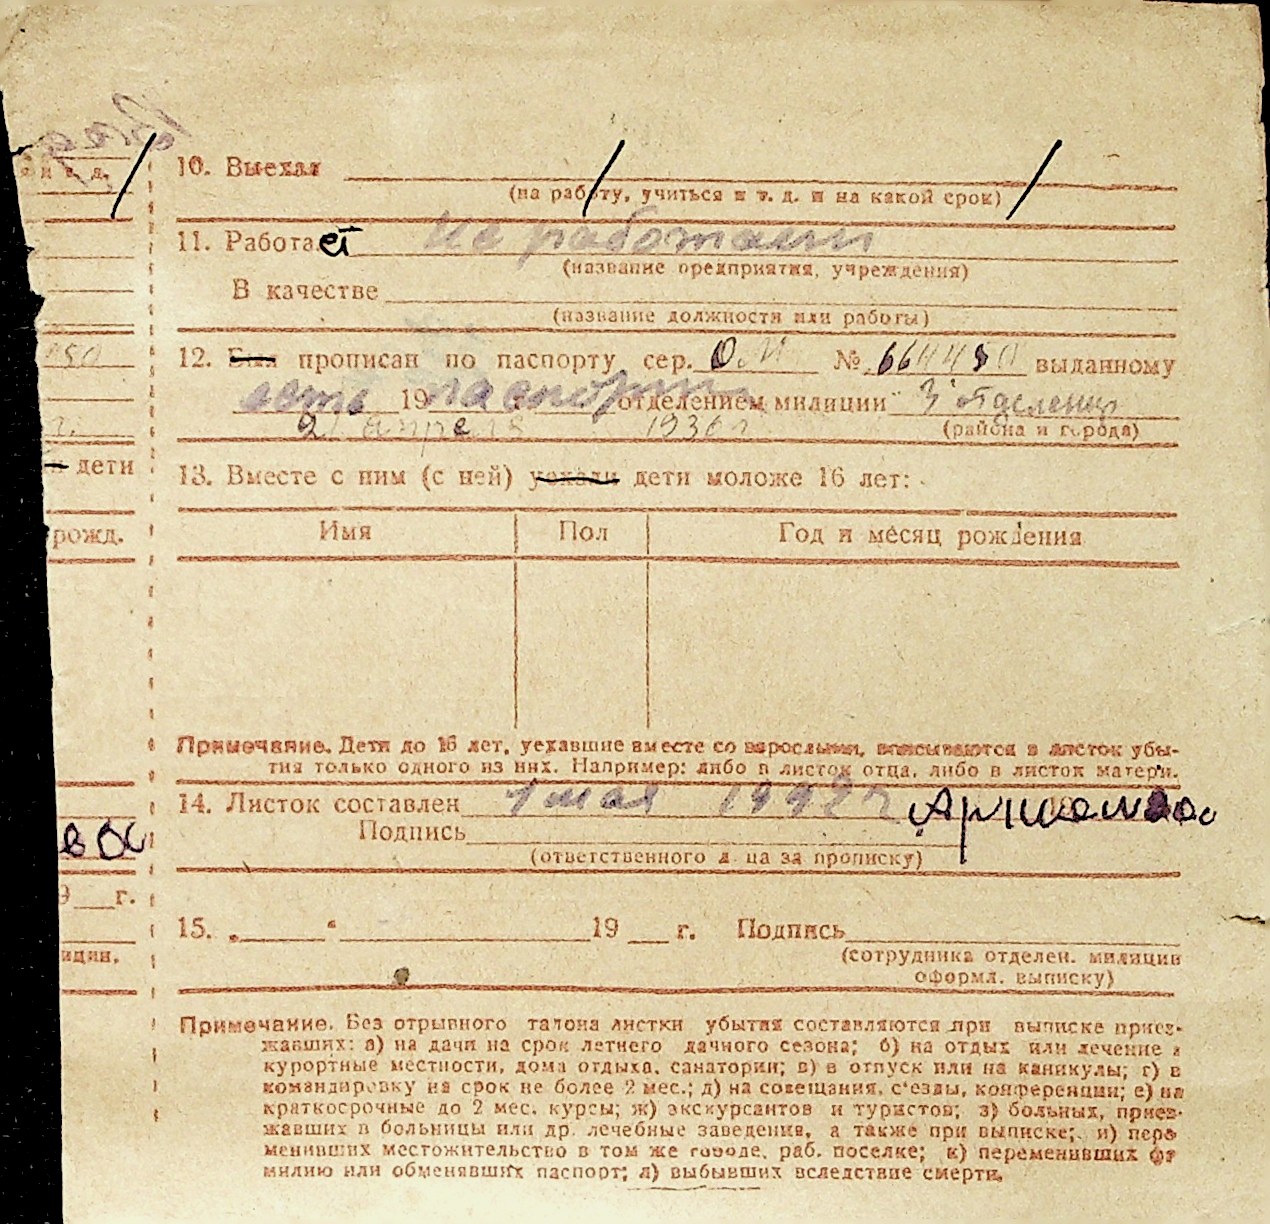 10. Выехал
(на работу, учиться и т. д. и на какой срок)
11. Работает Не работает
(название предприятия, учреждения)
В качестве
(название должности или работы)
12. Был прописан по паспорту сер. О.М № 664450 выданному
есть 19 паспорт отделением милиции 3 отделения
2 апреля 1936 г (района и города)
дети
13. Вместе с ним (с ней) уехали дети моложе 16 лет:
рожд.
Имя Пол Год и месяц рождения
Примечание. Дети до 16 лет, уехавшие вместе со взрослыми, вписываются в листок убы-
тия только одного из них. Например: либо в листок отца, либо в листок матери.
14. Листок составлен 1 мая 1942 г
Подпись
(ответственного лица за прописку)
г.
15. „ “ 19 г. Подпись
(сотрудника отделен. милиции
оформл. выписку)
Примечание. Без отрывного талона листки убытия составляются при выписке приез-
жавших: а) на дачи на срок летнего дачного сезона; б) на отдых или лечение в
курортные местности, дома отдыха, санатории; в) в отпуск или на каникулы; г) в
командировку на срок не более 2 мес.; д) на совещания, с'езды, конференции; е) на
краткосрочные до 2 мес. курсы; ж) экскурсантов и туристов; з) больных, приез-
жавших в больницы или др. лечебные заведения, а также при выписке; и) пере
менивших местожительство в том же городе, раб. поселке; к) переменивших фа
милию или обменявших паспорт; л) выбывших вследствие смерти.